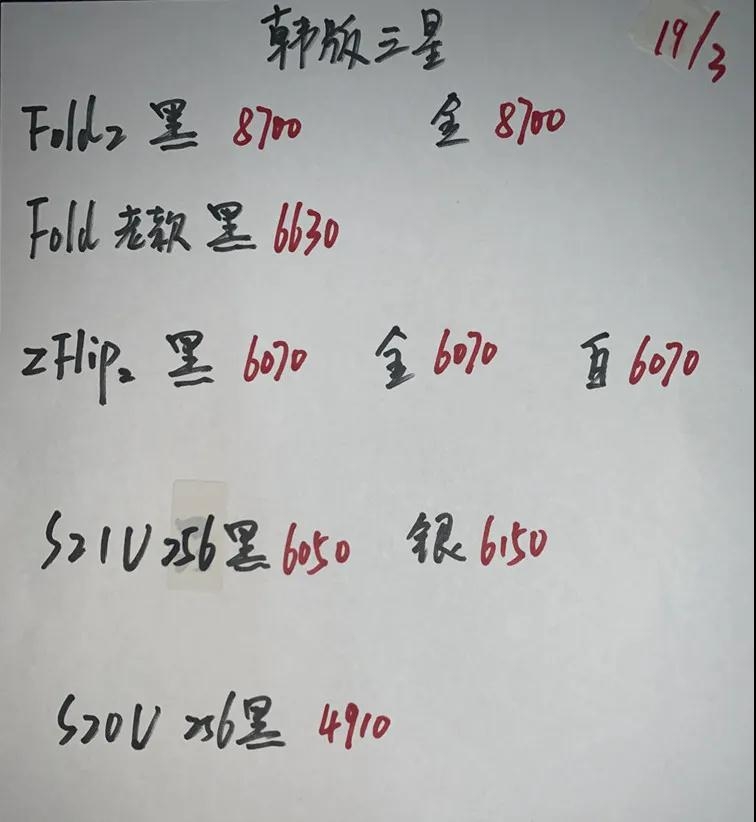 韩版三星 19/3
Fold2 黑 8700 金 8700
Fold 老款 黑 6630
ZFlip2 黑 6070 金 6070 白 6070
S21U 256 黑 6050 银 6150
S20U 256 黑 4910